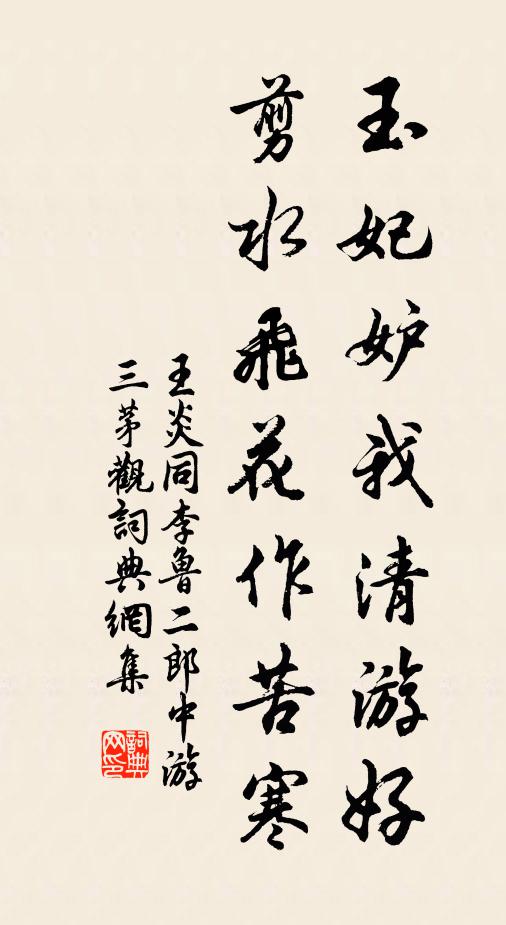 玉妃妒我清游好
剪水飛花作苦寒
王炎同李魯二郎中游
三茅觀詞典網集
詞典網印